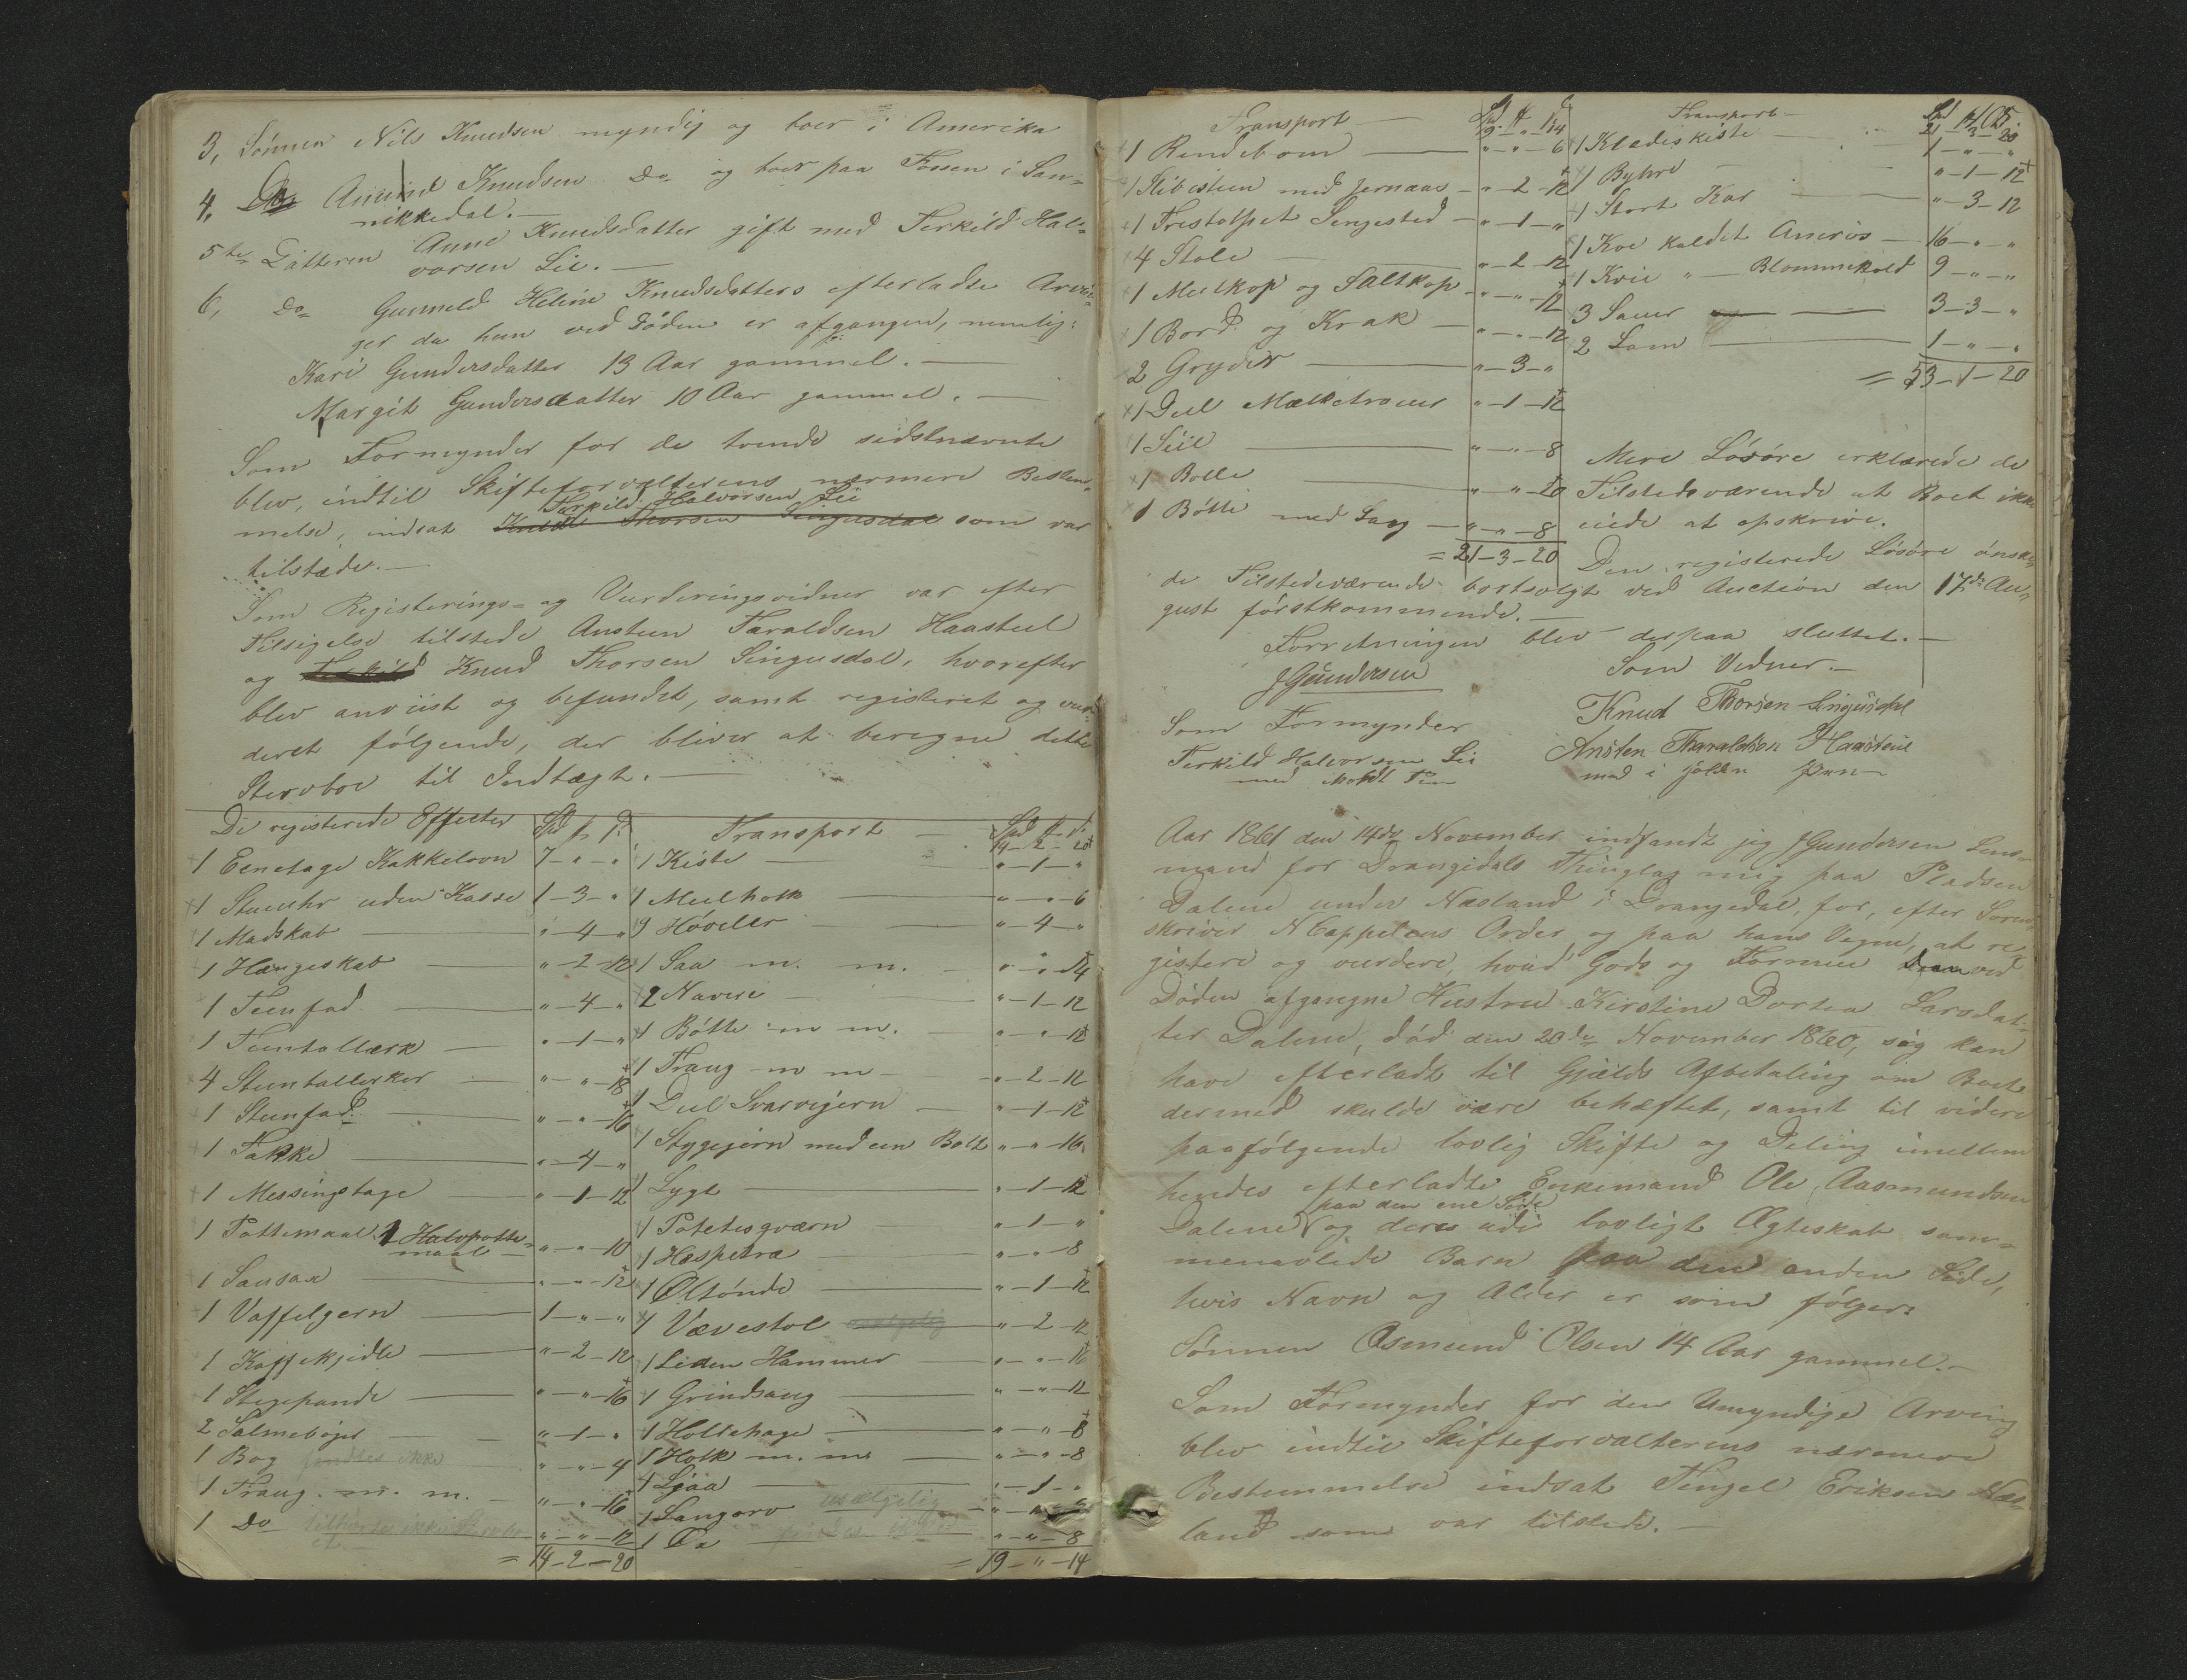 3, Sønnen Nils Knudsen myndig og boer i Amerika
4, Do Amund Knudsen Do og boer paa Fossen i San=
nikkedal.—
5te Datteren Anne Knudsdatter gift med Terkild Hal=
vorsen Lie.—
6, Do Gunneld Heline Knudsdatters efterladte Arvin=
ger da hun ved Døden er afgangen, nemlig:
Kari Gundersdatter 13 Aar gammel.—
Margit Gundersdatter 10 Aar gammel.—
Som Formynder for de tvende sidstnævnte
blev, indtil Skifteforvalterens nærmere Bestem=
Terkild Halvorsen Lie
melse, indsat Knud Thorsen Lingusdal som var
tilstæde.—
Som Registerings= og Vurderingsvidner var efter
Tilsigelse tilstede Austeen Taraldsen Haasteel
og Terkild Knud Thorsen Lingusdal, hvorefter
blev anviist og befundet, samt registeret og vur=
deret følgende, der bliver at beregne dette
Stervboe til Indtægt.—
De registerede Effecter Spd ẞ
1 Eenetage Kakkelovn 7 - " - "
1 Stueuhr uden Kasse 1 - 3 - "
1 Madskab " - 4 - "
1 Hængeskab " - 2 - 12
1 Teenfad " - 4 - "
1 Teentallærk " - 1 - "
4 Steentallerker " - " - 18
1 Steenfad " - " - 16
1 Takke " - 4 - "
1 Messingstage " - 1 - 12
1 Pottemaal 1 Halvpotte=
maal " - " - 10
1 Sausax " - " - 12
1 Vaffeljern 1 - " - "
1 Kaffekjedle " - 2 - 12
1 Stegepande " - " - 16
2 Salmebøger " - 1 - "
1 Bog fandtes ikke " - " - 4
1 Traug m. m. " - " - 16
1 Do " - " - 12
= 14 - 2 - 20
Transport Spd
14 - 2 - 20
1 Kiste " - 1 - "
1 Meelholk " - " - 6
9 Høveller " - 4 - "
1 Saa m. m. " - " - 14
2 Navere " - 1 - 12
1 Bøtte m m. " - " - 12
1 Traug m m " - 2 - 12
1 Deel Svarvejern " - 1 - 12
1 Stygejern med een Bolt " - " - 16
1 Lygt " - 1 - 12
1 Potetesqværn " - 1 - "
1 Hespetræ " - " - 8
1 Øltønde " - 1 - 12
1 Vævestol " - 2 - 12
1 Liden Hammer " - " - 16
1 Grindsaug " - " - 12
1 Hollehage " - " - 8
1 Holk m. m. " - " - 8
1 Ljaa " - 1 - "
1 Langorv usælgelig
" - " - 8
= 19 - " - 14
Transport Spd
19 - " - 14
1 Rendebom " - " - 6
1 Slibesteen med Jernaas " - 2 - 12
1 Trestolpet Sengested " - 1 - "
4 Stole " - 2 - 12
1 Meelkop og Saltkop " - " - 12
1 Bord og Krak " - " - 12
2 Gryder " - 3 - "
1 Deel Mælketrauer " - 1 - 12
1 Siil " - " - 8
1 Bolle " - " - 20
1 Bøtte med Laag " - " - 8
= 21 - 3 - 20
Transport 25.
21 - 3 - 20
1 Klædeskiste 1 - " - "
1 Byhre " - 1 - 12
1 Stort Kar " - 3 - 12
1 Koe kaldet Ameros 16 - " - "
1 Kvie " - Blommekold 9 - " - "
3 Sauer 3 - 3 - "
2 Lam 1 - " - "
= 53 - 1 - 20
Mere Løsøre erklærede de
Tilstedeværende at Boet ikke
eiede at opskrive.
Den registerede Løsøre ønske=
de Tilstedeværende bortsolgt ved Auction den 17de Au=
gust førstkommende.—
Forretningen blev derpaa sluttet.—
JGundersen
Som Vidner.—
Knud Thorsen Lingusdal
Ansten Tharaldsen Haasteul
med i holden Pen
Som Formynder
Terkild Halvorsen Lie
med iholdt Pen
Aar 1861 den 14de November indfandt jeg JGundersen Lens=
mand for Drangedals Thinglag mig paa Pladsen
Dalene under Næsland i Drangedal, for, efter Soren=
skriver NCappelens Ordre og paa hans Vegne, at re=
gistere og vurdere, hvad Gods og Formue den ved
Døden afgangne Hustru Kirstine Dortea Larsdat=
ter Dalene, død den 20de November 1860, sig kan
have efterladt til Gjælds Afbetaling om Boet
dermed skulde være behæftet, samt til videre
paafølgende lovlig Skifte og Deling imellem
hendes efterladte Enkemand Ole Aasmundsen
paa den ene Side
Dalene og deres udi lovligt Ægteskab sam=
menavlede Barn paa den anden Side,
hvis Navn og Alder er som følger:
Sønnen Osmund Olsen 14 Aar gammel.—
Som Formynder for den Umyndige Arving
blev indtil Skifteforvalterens nærmere
Bestemmelse indsat Tengel Eriksen Næs=
land som var tilstede.—